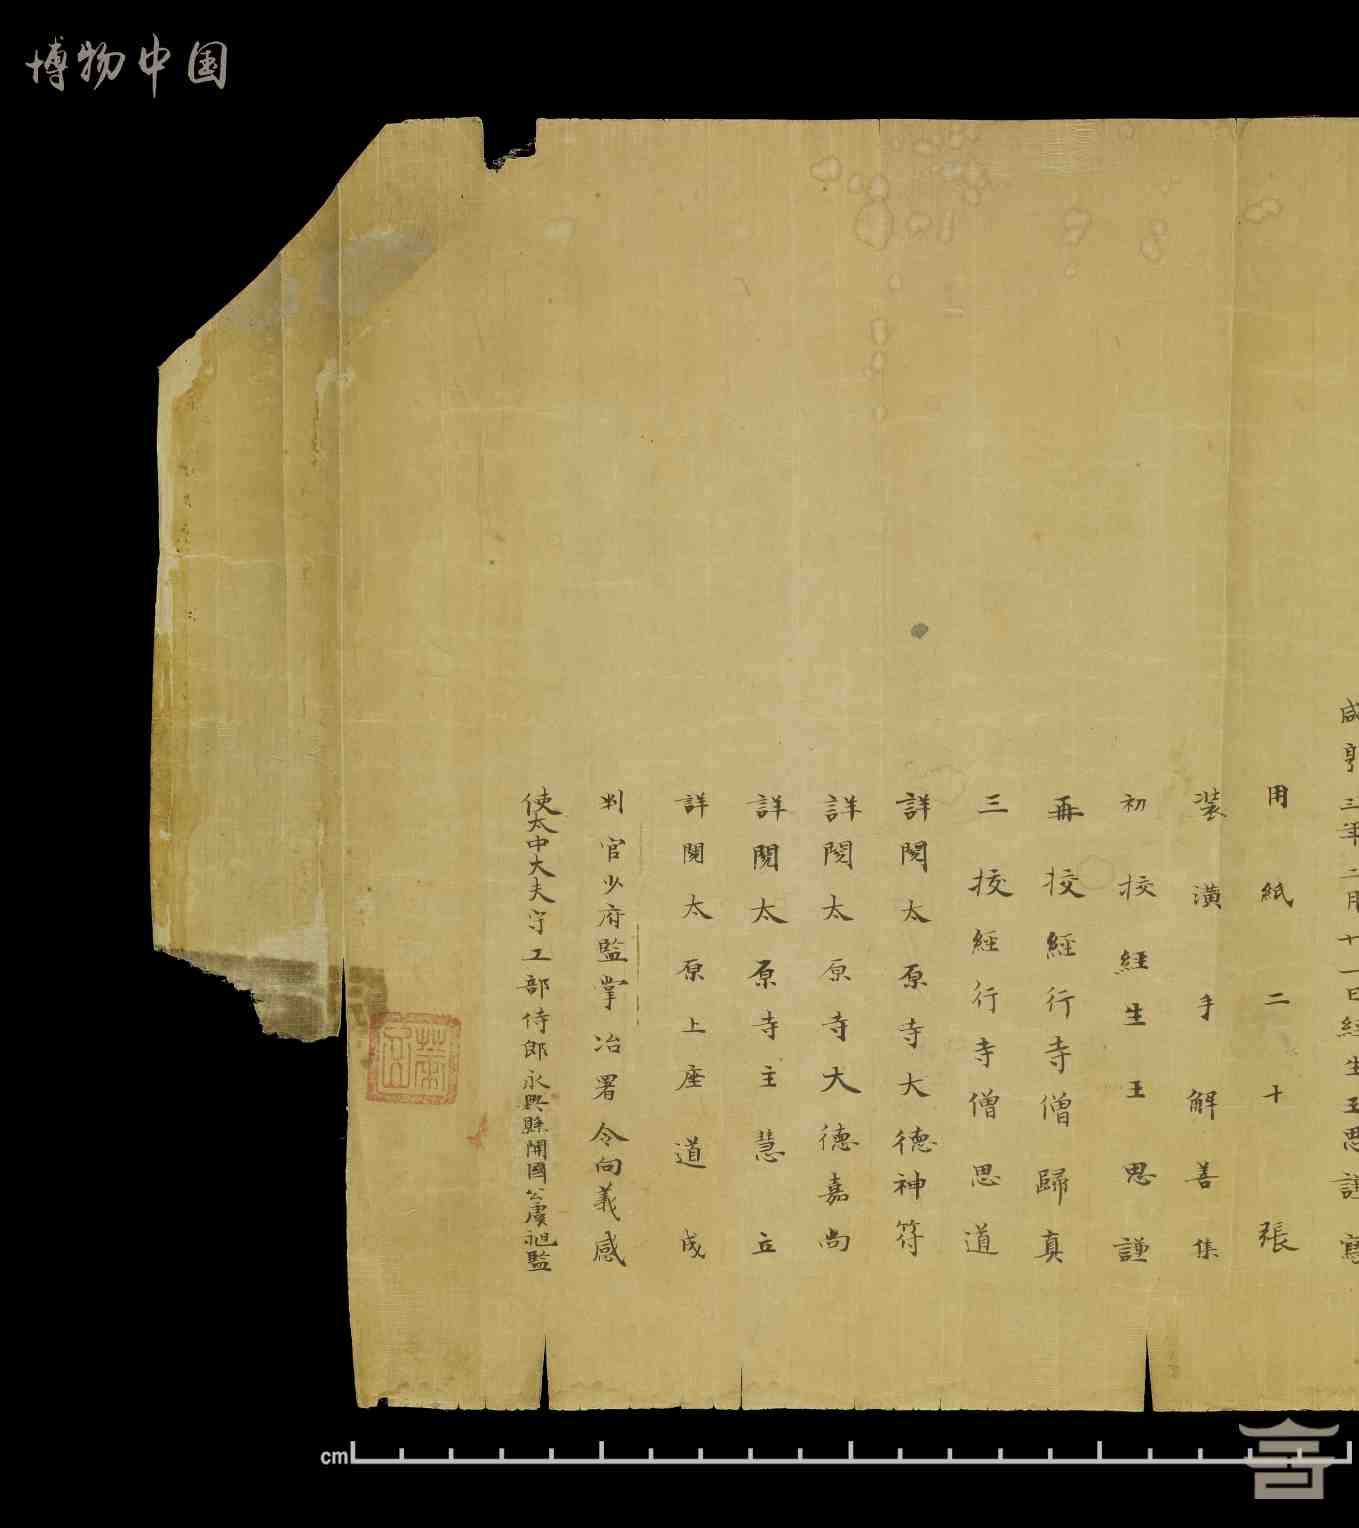 博物中国
咸亨三年二月十一日經生王思謹寫
用紙二十張
裝潢手解善集
初挍經生王思謹
再挍經行寺僧歸真
三挍經行寺僧思道
詳閱太原寺大德神符
詳閱太原寺大德嘉尚
詳閱太原寺主慧立
詳閱太原上座道成
判官少府監掌冶署令向義感
使太中大夫守工部侍郎永興縣開國公虞昶監
cm